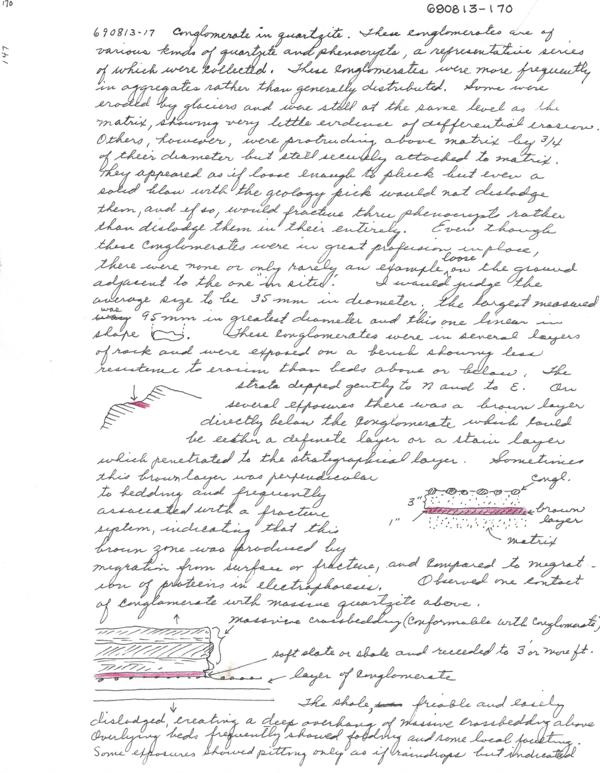 170
147
690813-170
690813-17 Conglomerate in quartzite. These conglomerates are of
various kinds of quartzite and phenocrysts, a representative series
of which were collected. These conglomerates were more frequently
in aggregates rather than generally distributed. Some were
eroded by glaciers and were still at the same level as the
matrix, showing very little evidence of differential erosion.
Others, however, were protruding above matrix by 3/4
of their diameter but still securely attached to matrix.
They appeared as if loose enough to pluck but even a
solid blow with the geology pick would not dislodge
them, and if so, would fracture thru phenocrysts rather
than dislodge them in their entirety. Even though
these conglomerates were in great profusion in place,
there were none or only rarely an example loose on the ground
adjacent to the one "in situ". I would judge the
average size to be 35 mm in diameter. The largest measured
was 95 mm in greatest diameter and this one linear in
shape. These conglomerates were in several layers
of rock and were exposed on a bench showing less
resistence to erosion than beds above or below. The
strata dipped gently to N and to E. On
several exposures there was a brown layer
directly below the conglomerate which could
be either a definite layer or a stain layer
which penetrated to the stratigraphical layer. Sometimes
this brown layer was perpendicular
to bedding and frequently
associated with a fracture
system, indicating that this
brown zone was produced by
migration from surface or fracture, and compared to migrat-
ion of proteins in electrophoresis. Observed one contact
of conglomerate with massive quartzite above.
congl.
3"
1"
brown
layer
matrix
massive crossbedding (conformable with conglomerate)
soft slate or shale and receeded to 3' or more ft.
layer of conglomerate
The shale, friable and easily
dislodged, creating a deep overhang of massive crossbedding above
Overlying beds frequently showed folding and some local faulting.
Some exposures showed pitting only as if raindrops but indicated